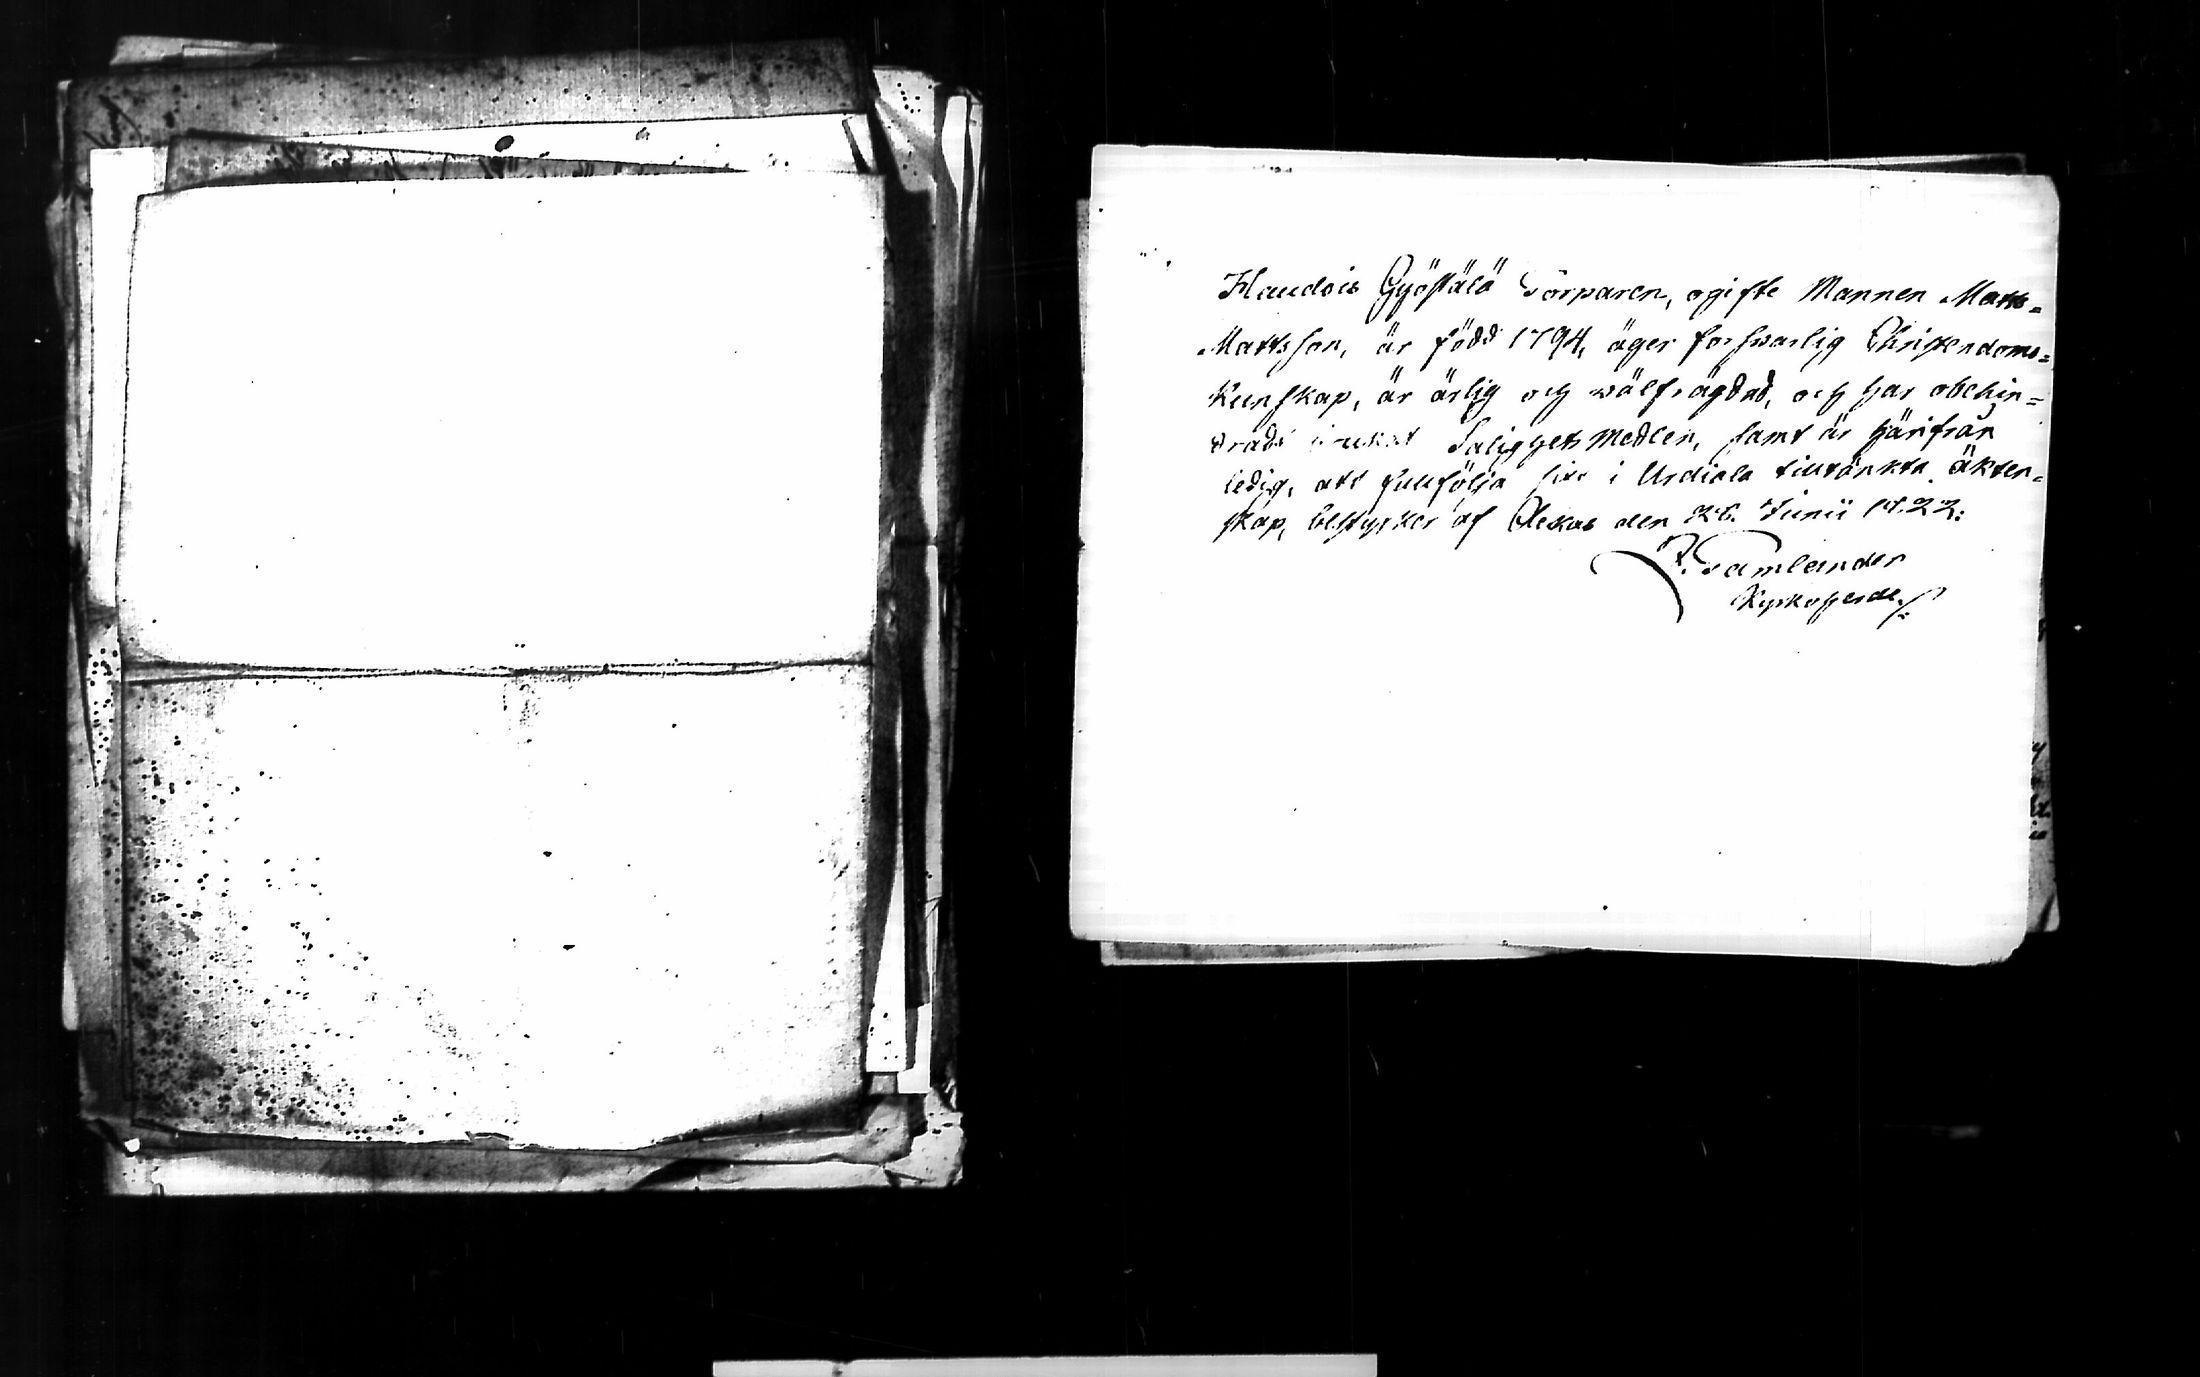 Haudois Gyöstälä Torparen, ogifte Mannen Matts=
Mattsson, är född 1794, äger forswarlig Christendoms=
Kunskap, är ärlig och wälfrägdad, och har obehin=
dradt brukat Salighets Medlen, samt är härifrån
ledig, att fullfölja sitt i Urdiala tilltänkta äkten=
skap, bestyrker af Akkas den 26. Junii 1822:
F. Tamlander
Kyrkoherde